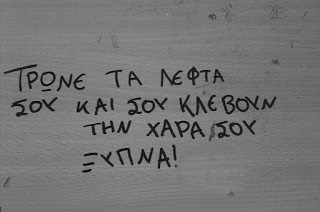 ΤΡΩΝΕ ΤΑ ΛΕΦΤΑ
ΣΟΥ ΚΑΙ ΣΟΥ ΚΛΕΒΟΥΝ
ΤΗΝ ΧΑΡΑ ΣΟΥ
ΞΥΠΝΑ!